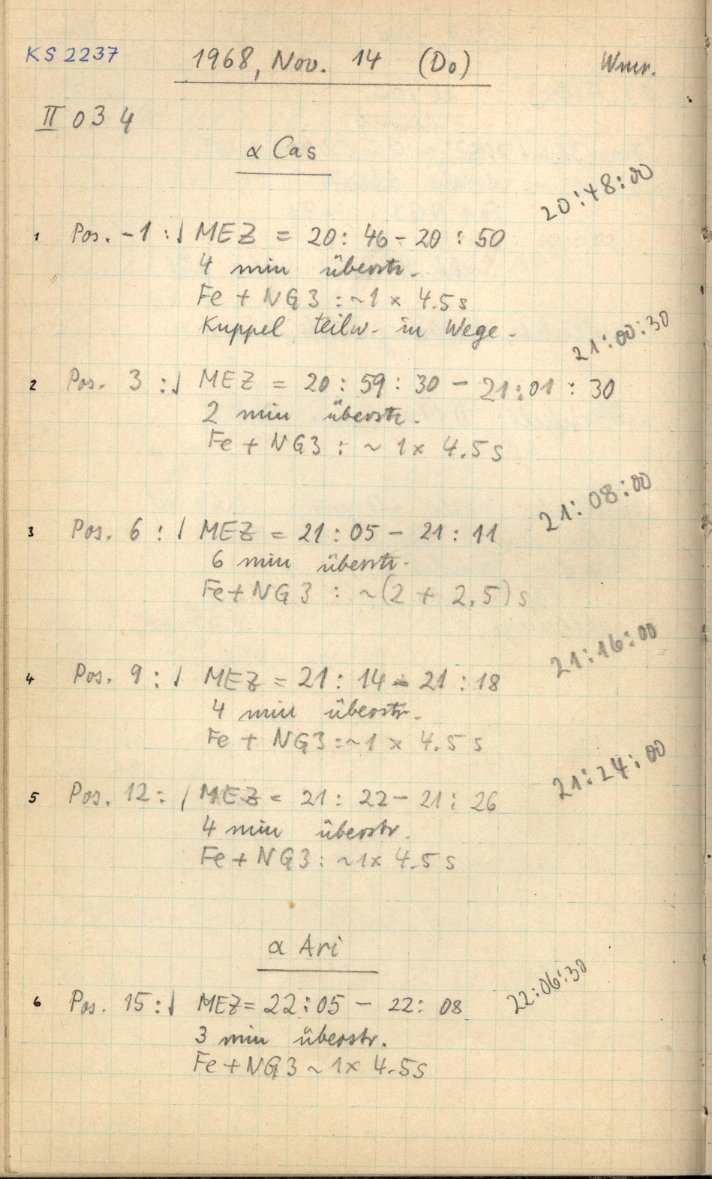 KS 2237 1968, Nov. 14 (Do) Wmr.
II 034
α Cas
20:48:00
1 Pos. -1 : ↓ MEZ = 20 : 46 - 20 : 50
4 min überstr.
Fe + NG3 : ~1 × 4.5 s
Kuppel teilw. in Wege.
21:00:30
2 Pos. 3 : ↓ MEZ = 20 : 59 : 30 - 21:01 : 30
2 min überstr.
Fe + NG3 : ~ 1 × 4.5 s
21:08:00
3 Pos. 6 : ↓ MEZ = 21 : 05 - 21 : 11
6 min überstr.
Fe + NG3 : ~(2 + 2,5) s
21:16:00
4 Pos. 9 : ↓ MEZ = 21 : 14 - 21 : 18
4 min überstr.
Fe + NG3 : ~1 × 4.5 s
21:24:00
5 Pos. 12 : ↓ MEZ = 21 : 22 - 21 : 26
4 min überstr.
Fe + NG3 : ~1× 4.5 s
α Ari
22:06:30
6 Pos. 15 : ↓ MEZ = 22:05 - 22: 08
3 min überstr.
Fe + NG3 ~ 1× 4.5s